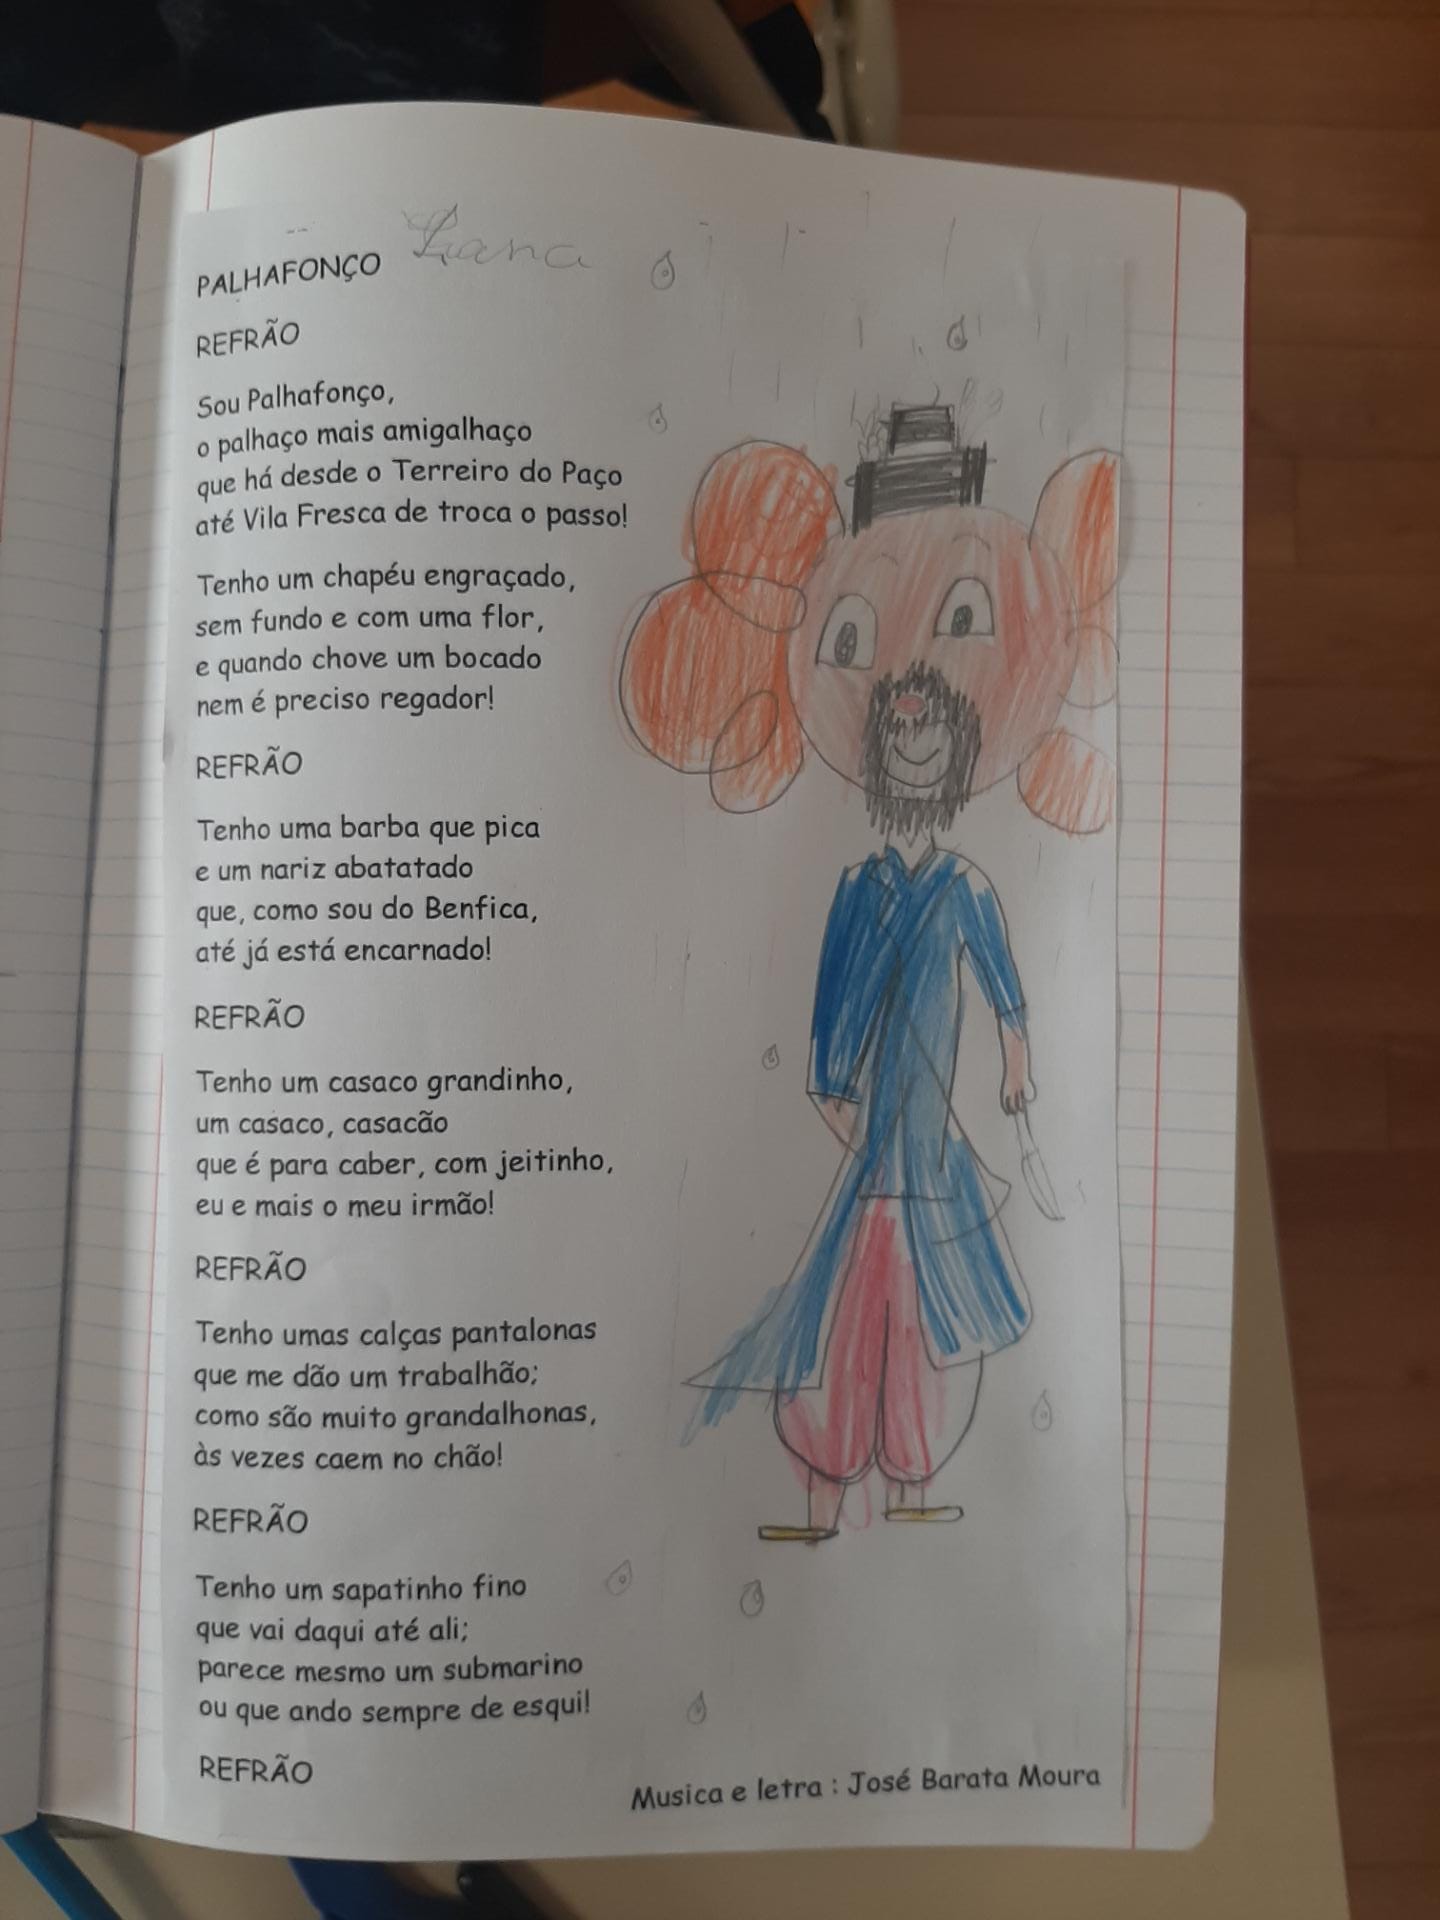 PALHAFONÇO
REFRÃO
Sou Palhafonço,
o palhaço mais amigalhaço
que há desde o Terreiro do Paço
até Vila Fresca de troca o passo!
Tenho um chapéu engraçado,
sem fundo e com uma flor,
e quando chove um bocado
nem é preciso regador!
REFRÃO
Tenho uma barba que pica
e um nariz abatatado
que, como sou do Benfica,
até já está encarnado!
REFRÃO
Tenho um casaco grandinho,
um casaco, casacão
que é para caber, com jeitinho,
eu e mais o meu irmão!
REFRÃO
Tenho umas calças pantalonas
que me dão um trabalhão;
como são muito grandalhonas,
às vezes caem no chão!
REFRÃO
Tenho um sapatinho fino
que vai daqui até ali;
parece mesmo um submarino
ou que ando sempre de esqui!
REFRÃO
Musica e letra : José Barata Moura